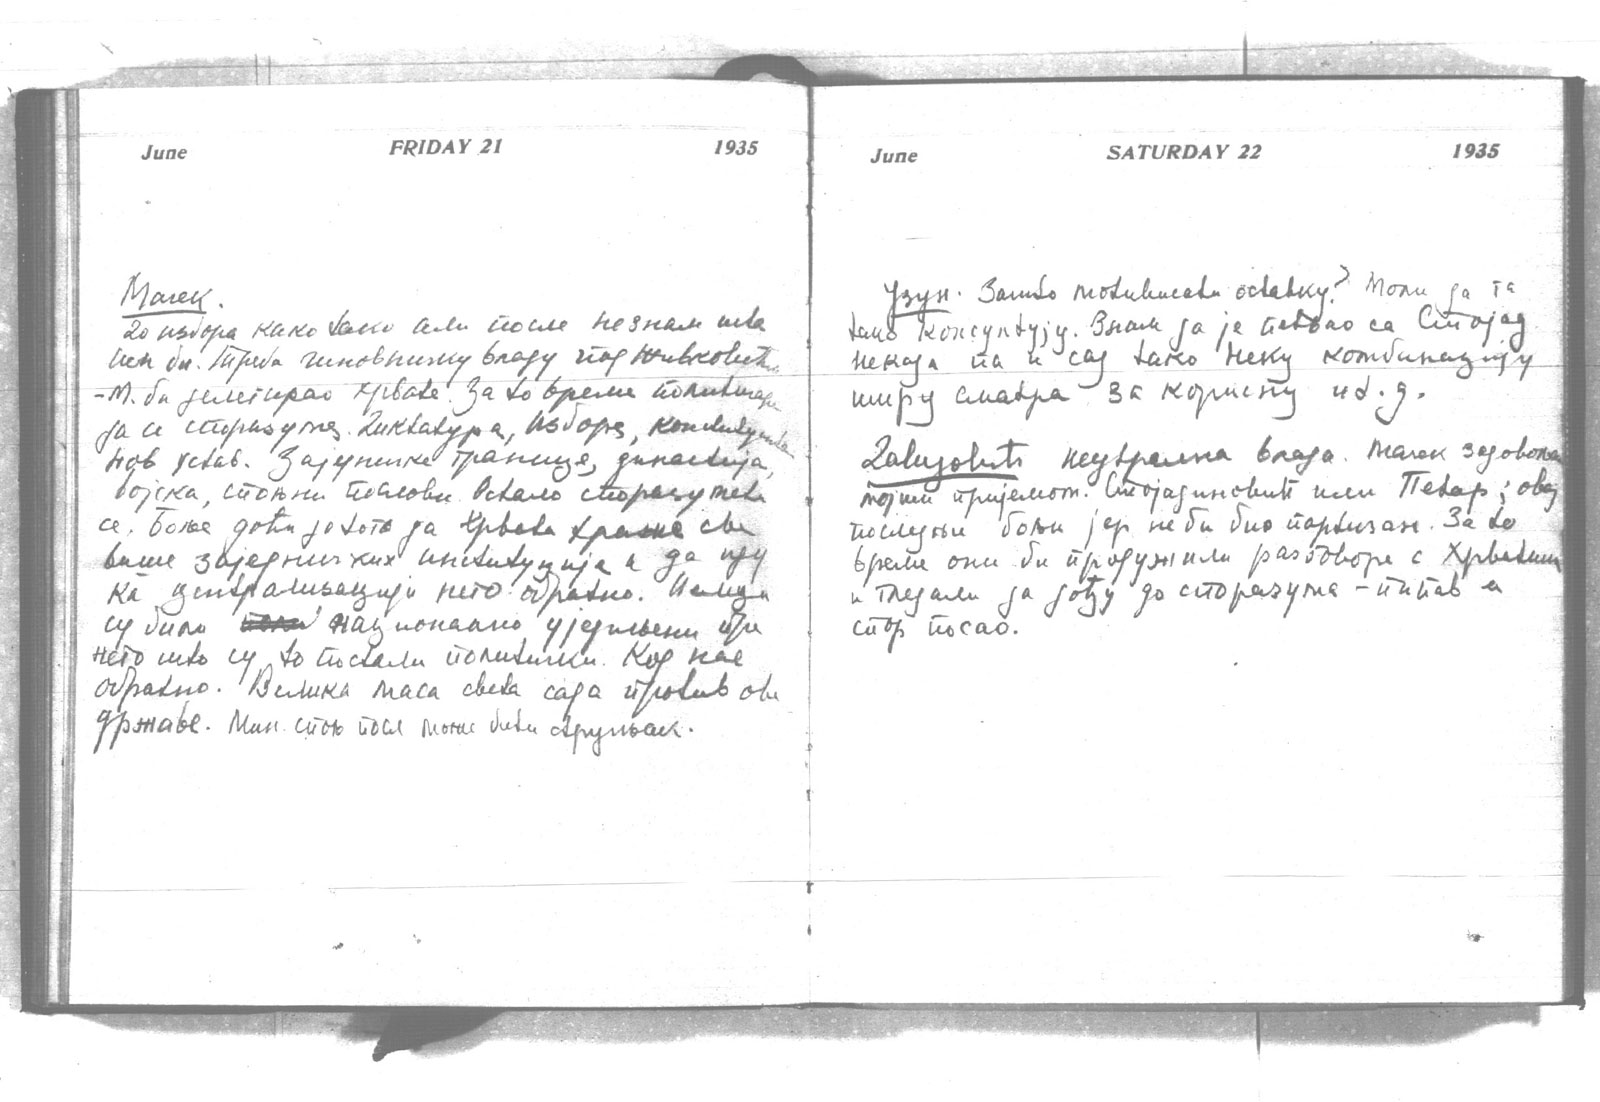 June FRIDAY 21 1935
Мачек.
До избора како тако али после незнам шта
чек би. Треба чиновничку владу под Живковићем
– М. би делегирао Хрвате. За то време политичари
да се споразуме. Диктатура, избори, конституанта
нов устав. Заједничке границе, династија,
војска, спољни послови. Остало споразумети
се. Боље доћи до тога да Хрвати траже све
више заједничких институција и да иду
ка централизацији него обратно. Немци
су били национално уједињени пре
него што су то постали политички. Код нас
обратно. Велика маса света сада против ове
државе. Мин. спољ посл може бити стручњак.
June SATURDAY 22 1935
Узун. Зашто мотивисати оставку? Моли да га
тако консултују. Знам да је певао са Стојад
некада па и сад тако неку комбинацију
ширу сматра за корисну ит.д.
Давидовић неутрална влада. Мачек задовољан
мојим пријемом. Стојадиновић или Петар; овај
последњи бољи јер не би био партизан. За то
време они би продужили разговоре с Хрватима
и гледали да дођу до споразума – пипав и
спор посао.